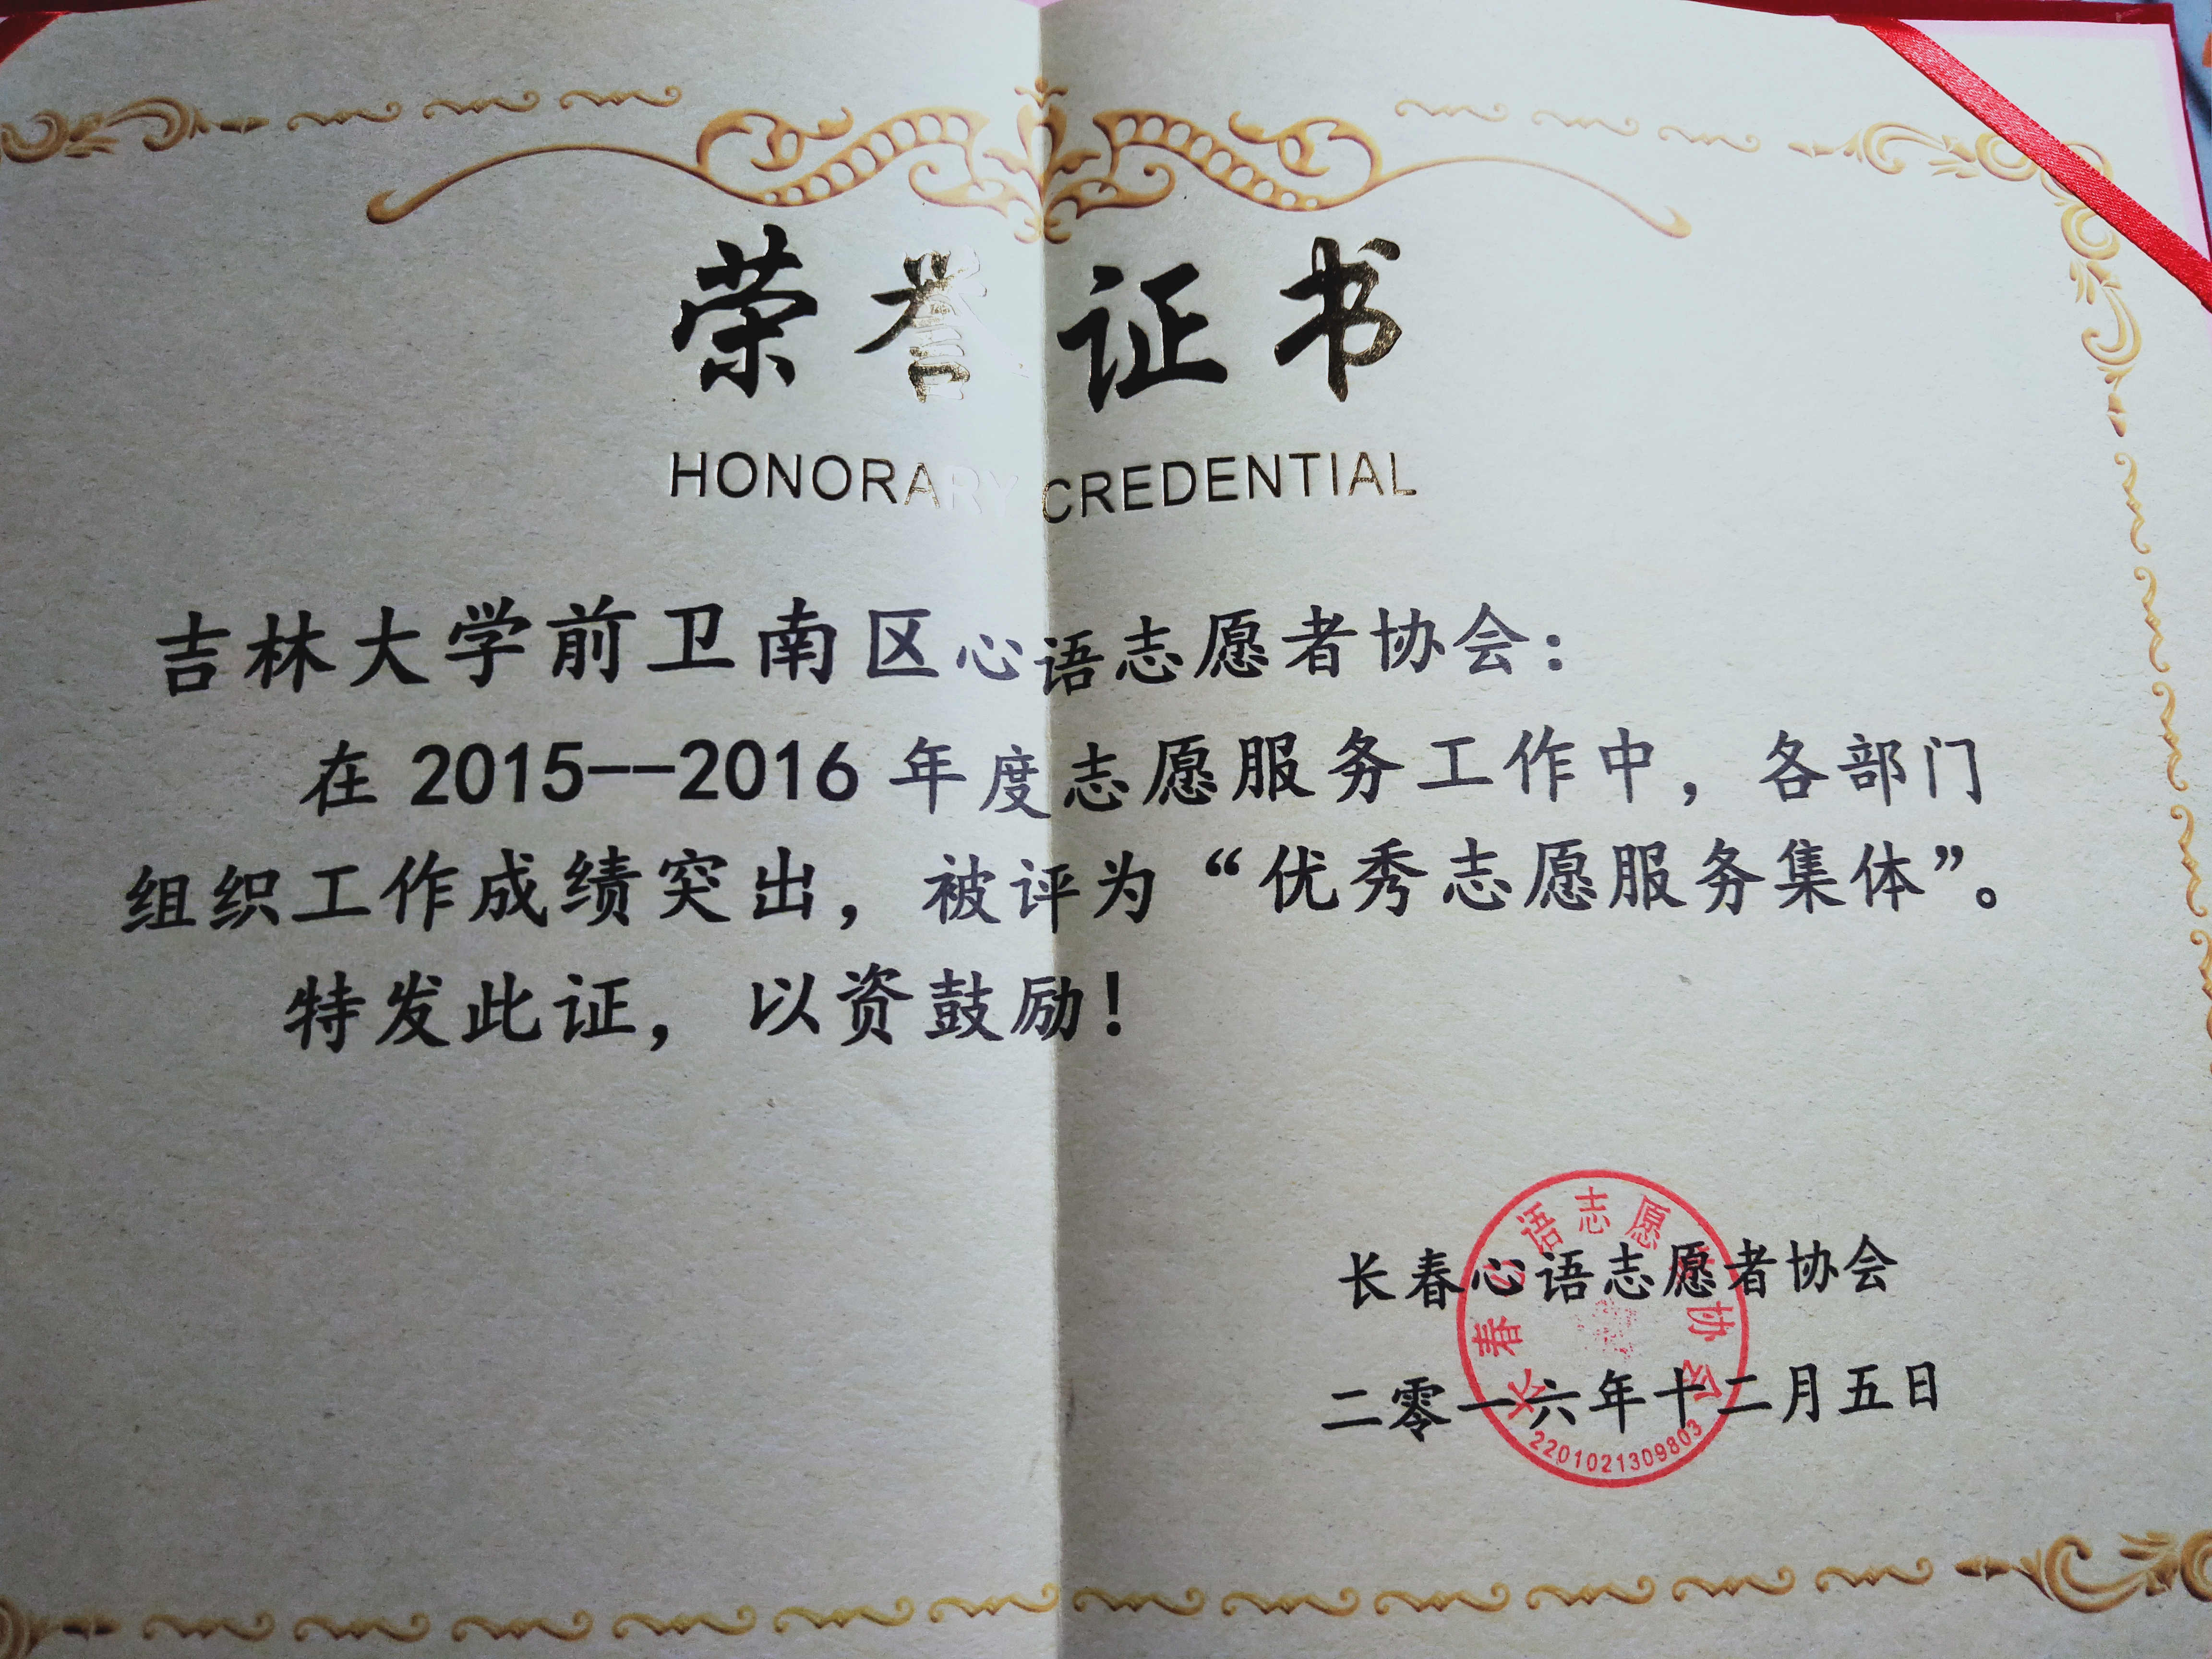 荣誉证书
HONORARY CREDENTIAL
吉林大学前卫南区心语志愿者协会：
在 2015--2016 年度志愿服务工作中，各部门
组织工作成绩突出，被评为“优秀志愿服务集体”。
特发此证，以资鼓励！
长春心语志愿者协会
二零一六年十二月五日
长春心语志愿者协会
2201021309803